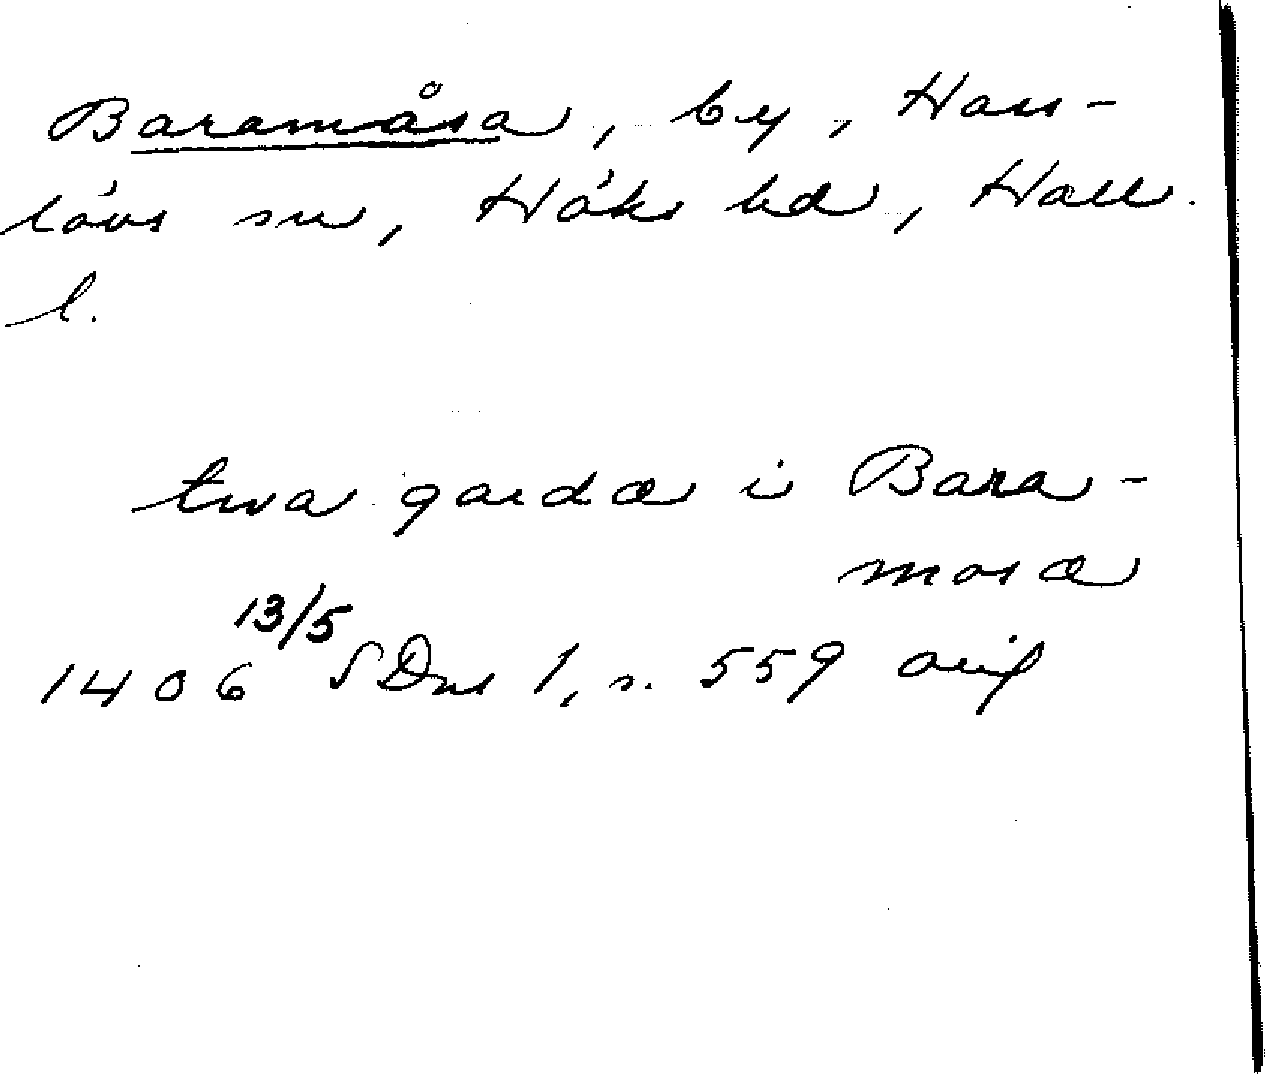 Baramåsa, by, Hass-
lövs sn, Höks hd, Hall.
l.
twa gardæ i Bara-
mosæ
13/5
1406 SDns 1, s. 559 orig